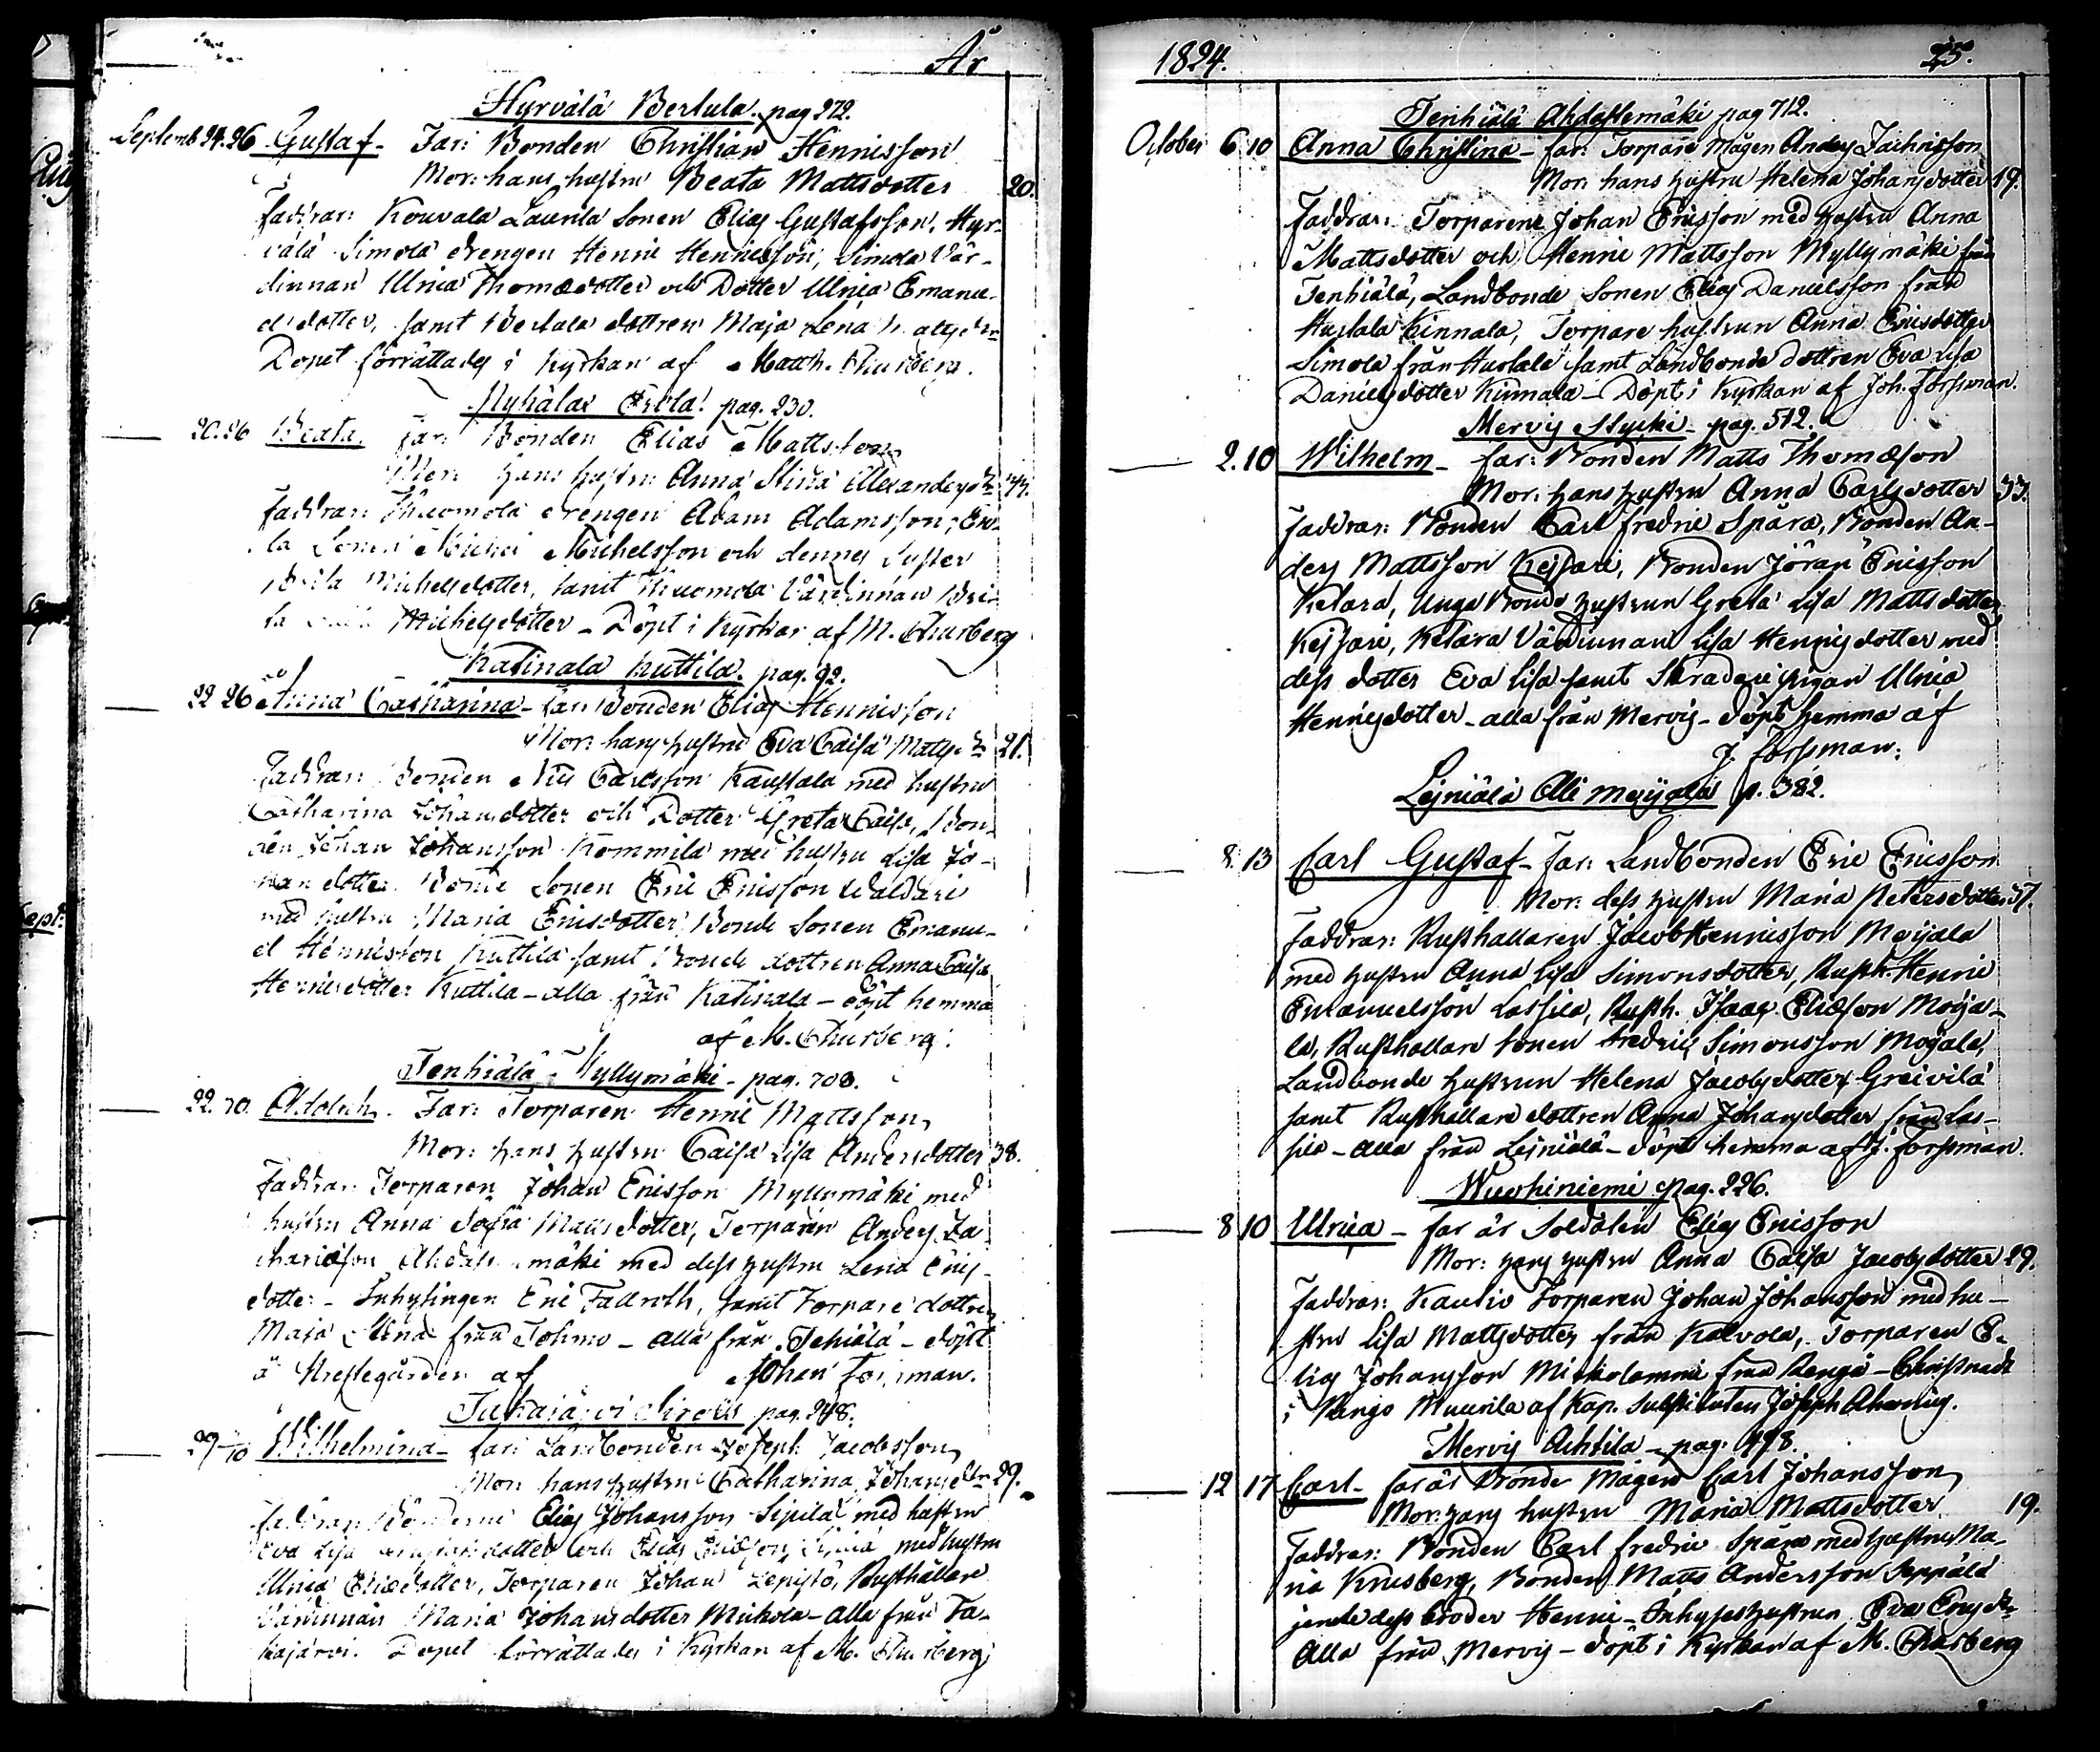 År
Hyrvälä Bertula. pag 272.
Septemb. 24. 26 Gustaf. Far: Bonden Christian Hennisson
Mor: hans hustru Beata Mattsdotter 20.
Faddrar: Kouvala Sonen Elias Gustafsson, Hyr-
välä Simola drengen Henric Hennisson, Simola Vär-
dinnan Ulrica Thomædotter och Dotter Ulrica Emanu-
elsdotter, samt Bertula dottren Maja Lena
Dopet förrättades i Kyrkan af Matth. Churberg.
Nyhälax Erola. pag. 230.
20. 26 Beata. Far: Bonden Elias Mattsson
Mor: hans hustru Anna Stina Alexandersdr
Faddrar: drengen Adam Adamsson, Ero-
la Sonen Michel Michelsson och dennes Syster
Brita Michelsdotter, samt Värdinnan Bri-
ta Michelsdotter - Döpt i Kyrkan af M. Churberg
Katinala Kuttila. pag. 92.
22 26 Anna Catharina - Far: Bonden Elias Hennisson
Mor: hans hustru Eva Caisa Mattsdr 21.
Faddrar: Bonden Nils Carlsson Kaustala med hustru
Catharina Johansdotter och Dotter Greta Caisa, Bon-
den Johan Johansson Kommila med hustru Lisa Jo-
hansdotter. Bonde Sonen Eric Ericsson Uldari
med hustru Maria Ericsdotter, Bonde Sonen Emanu-
el Hennisson Kuttila samt Bonde dottren Anna Caisa
Hennisdotter Kuttila - alla från Katinala - döpt hemma
af M. Churberg.
Tenhiälä Myllymäki - pag. 708.
22. 30. Adolph. Far: Torparen Henric Mattsson,
Mor: hans hustru Caisa Lisa Andersdotter 38.
Faddrar: Torparen Johan Ericsson Myllymäki med
hustru Anna Sofia Mattsdotter, Torparen Anders Za-
chariæson Ahdastenmäki med dess hustru Lena Erics-
dotter - Inhysingen Eric Fallroth, samt Torpare dottren
Maja Stina från Johmo - alla från Tehiälä - döpt
å Prestegården af Johan Forssman.
Tukajärvi Sirola pag. 248.
29/10 Wilhelmina - far: Landbonden Joseph Jacobsson,
Mor: hans hustru Catharina Johansdr 29.
Faddrar: Bönderne Elias Johansson Sipilä med hustru
Eva Lisa dotter och Elias Eliæson med hustru
Ulrica Eliædotter, Torparen Johan Lepistö, Rusthållare
Värdinnan Maria Johansdotter Mickola - Alla från Ta-
kajärvi. Dopet förrättades i Kyrkan af M. Churberg
1824. 25.
Tenhiälä Ahdastemäki pag 712.
October 6 10 Anna Christina - far: Torpare Mågen Anders Zachrisson
Mor: hans hustru Helena Johansdotter 19.
Faddrar: Torparene Johan Ericsson med hustru Anna
Mattsdotter och Henric Mattsson Myllymäki från
Tenhiälä, Landbonde Sonen Elias Danielsson från
Hurtala Kinnala, Torpare hustrun Anna Ericsdotter
Simola från Hurtala samt Landbonde dottren Eva Lisa
Danielsdotter Kinnala - Döpt i Kyrkan af Joh. Forssman.
Mervis Mycki - pag. 512.
2. 10 Wilhelm - far: Bonden Matts Thomæson
Mor: hans hustru Anna Carlsdotter 33.
Faddrar: Bonden Carl Fredric Spåra, Bonden An-
ders Mattsson Kejsari, Bonden Jöran Ericsson
Ketara, Unga Bonde hustrun Greta Lisa Mattsdotter
Kejsari, Ketara Värdinnan Lisa Hennisdotter med
dess dotter Eva Lisa samt Skradare pigan Ulrica
Hennisdotter - alla från Mervis - döpt hemma af
J. Forssman.
Lejniälä Olli Meijala p. 382.
8. 13 Carl Gustaf - Far: Landbonden Eric Ericsson
Mor: dess hustru Maria Petersdotter 37.
Faddrar: Rusthållaren Jacob Hennisson Meijala
med hustru Anna Lisa Simonsdotter, Rusth. Henric
Emanuelsson Lassila, Rusth. Isaac Eliæson Moija-
la, Rusthållare sonen Fredric Simonsson Moijala,
Landbonde hustrun Helena Jacobsdotter Greivilä
samt Rusthållare dottren Anna Johansdotter från Las-
sila - Alla från Lejniälä - döpt hemma af J. Forssman.
Wuorhiniemi pag. 226.
8 10 Ulrica - far är Soldaten Elias Ericsson
Mor: hans hustru Anna Caisa Jacobsdotter 29.
Faddrar: Kautio Torparen Johan Johansson med hu-
stru Lisa Mattsdotter från Kalvola, Torparen E-
lias Johansson Mickolammi från Rengå - Christnadt
i Rengo Muurila af Kap. Substituten Joseph Ahrenius.
Mervis Achtila - pag. 498.
12 17 Carl - far är Bonde Mågen Carl Johansson,
Mor: hans hustru Maria Mattsdotter 19.
Faddrar: Bonden Carl Fredric Spåra med hustru Ma-
ria Krusberg, Bonden Matts Andersson Seppälä
jemte dess broder Henric - Inhyses hustrun Eva Ericsdr
Alla från Mervis - döpt i Kyrkan af M. Churberg